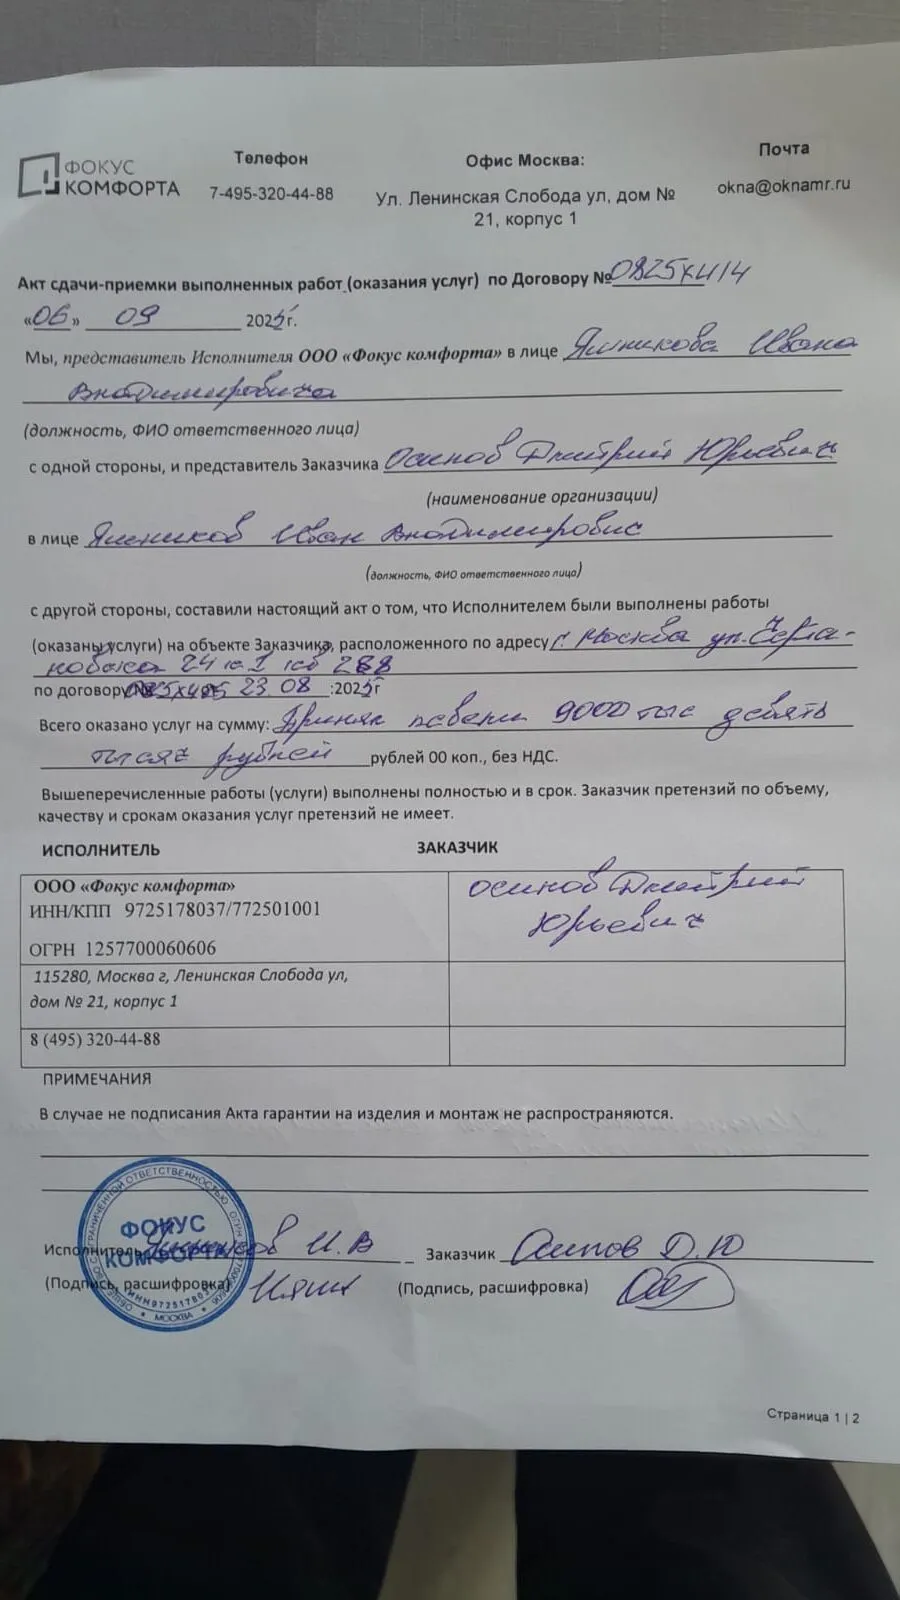 ФОКУС
КОМФОРТА
Телефон
7-495-320-44-88
Офис Москва:
Ул. Ленинская Слобода ул, дом №
21, корпус 1
Почта
okna@oknamr.ru
Акт сдачи-приемки выполненных работ (оказания услуг) по Договору № 0825х414
«06» 09 2025 г.
Мы, представитель Исполнителя ООО «Фокус комфорта» в лице Ямникова Ивана
Владимировича
(должность, ФИО ответственного лица)
с одной стороны, и представитель Заказчика Осипов Дмитрий Юрьевич
(наименование организации)
в лице Ямников Иван Владимирович
(должность, ФИО ответственного лица)
с другой стороны, составили настоящий акт о том, что Исполнителем были выполнены работы
(оказаны услуги) на объекте Заказчика, расположенного по адресу г. Москва ул.
24 к 1 кв 288
по договору 23 08 2025 г
Всего оказано услуг на сумму: Принял 9000 тыс девять
тысяч рублей рублей 00 коп., без НДС.
Вышеперечисленные работы (услуги) выполнены полностью и в срок. Заказчик претензий по объему,
качеству и срокам оказания услуг претензий не имеет.
ИСПОЛНИТЕЛЬ ЗАКАЗЧИК
ООО «Фокус комфорта»
ИНН/КПП 9725178037/772501001
ОГРН 1257700060606
Осипов Дмитрий
Юрьевич
115280, Москва г, Ленинская Слобода ул,
дом № 21, корпус 1
8 (495) 320-44-88
ПРИМЕЧАНИЯ
В случае не подписания Акта гарантии на изделия и монтаж не распространяются.
ФОКУС
КОМФОРТА
МОСКВА
Исполнитель Ямников И.В Заказчик Осипов Д.Ю
(Подпись, расшифровка) (Подпись, расшифровка)
Страница 1 | 2